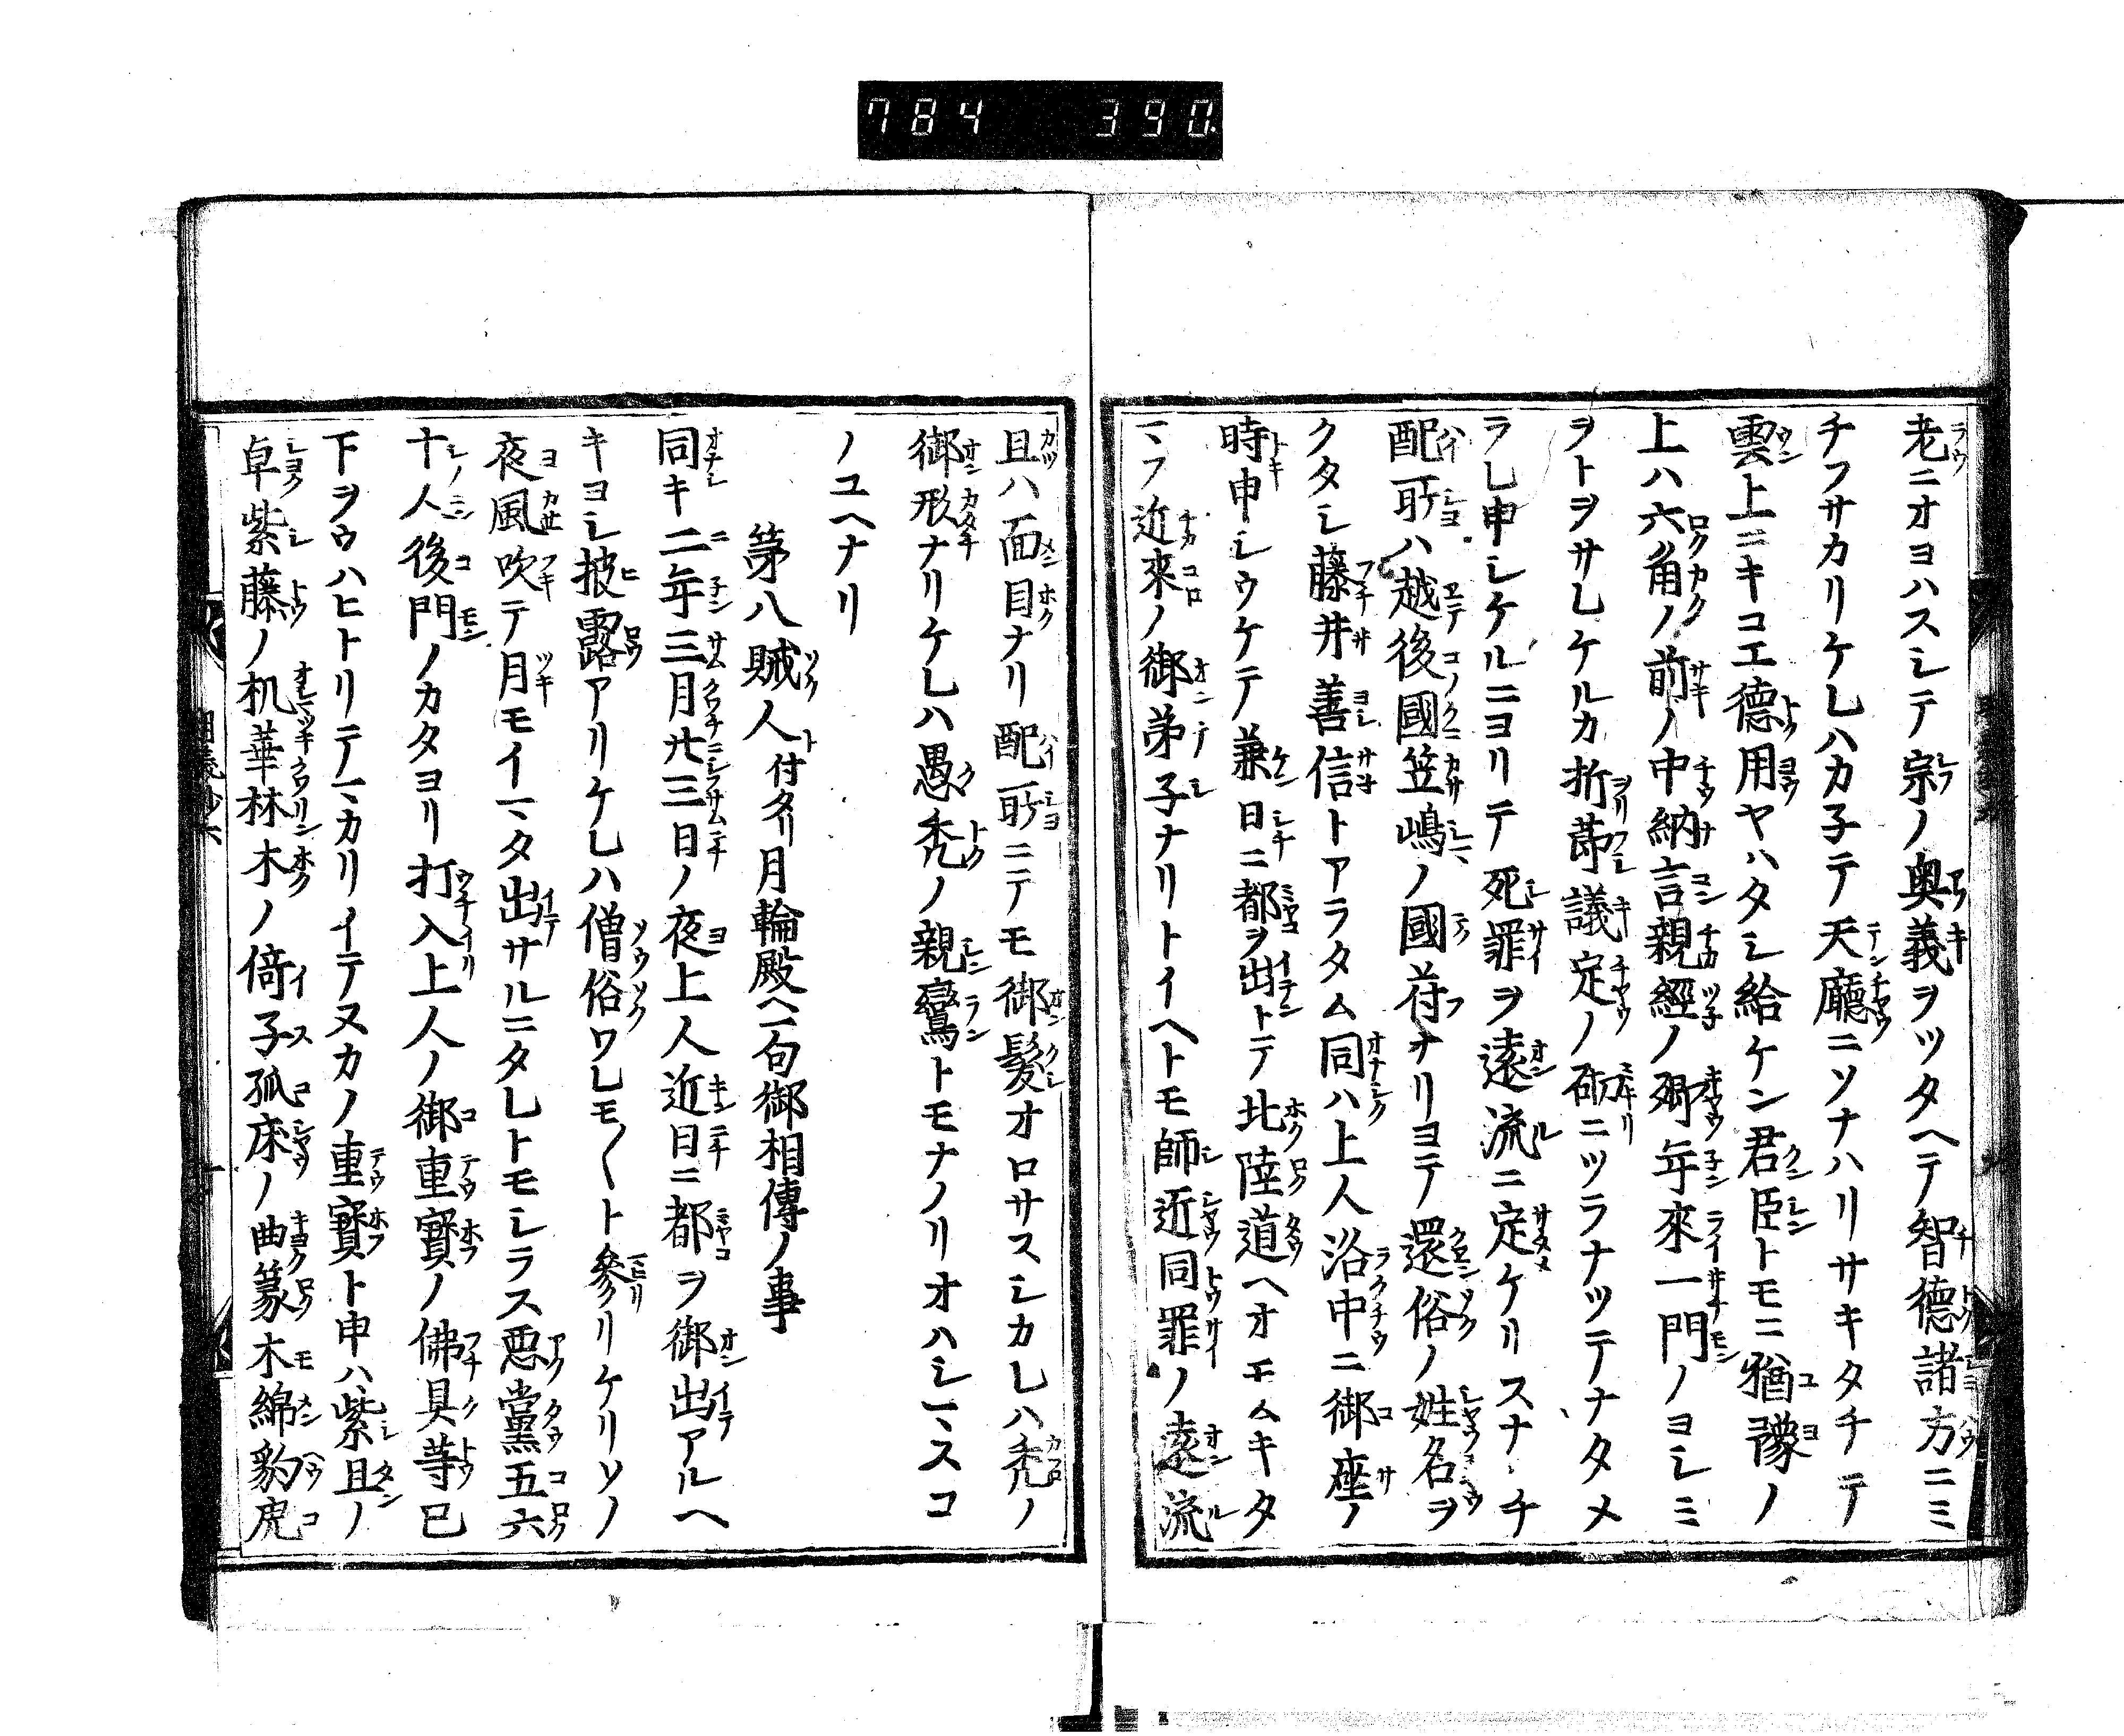 784 390
老ニオヨハスシテ宗ノ奥義ヲツタヘテ智徳諸方ニミ
チフサカリケレハカ子テ天廳ニソナハリサキタチテ
雲上ニキコエ德用ヤハタシ給ケン君臣トモニ猶豫ノ
上ハ六角ノ前ノ中納言親經ノ卿年來一門ノヨシミ
ヲトヲサレケルカ折莭議定ノ砌ニツラナツテナタメ
ラレ申シケルニヨリテ死罪ヲ遠流ニ定ケリスナハチ
配所ハ越後國笠嶋ノ國府ナリヨテ還俗ノ姓名ヲ
クタシ藤井善信トアラタム同ハ上人洛中ニ御座ノ
時申シウケテ兼日ニ都ヲ出トテ北陸道ヘオモムキタ
マフ近來ノ御弟子ナリトイヘトモ師近同罪ノ遠流
且ハ面目ナリ配所ニテモ御髪オロサスシカレハ禿ノ
御形ナリケレハ愚禿ノ親鸞トモナノリオハシマスコ
ノユヘナリ
第八賊人付タリ月輪殿ヘ一句御相傳ノ事
同キ二年三月廿三日ノ夜上人近日ニ都ヲ御出アルヘ
キヨシ披露アリケレハ僧俗ワレモ〱ト參リケリソノ
夜風吹テ月モイマタ出サルニタレトモシラス悪黨五六
十人後門ノカタヨリ打入上人ノ御重寳ノ佛具等已
下ヲウハヒトリテマカリイテヌカノ重寳ト申ハ紫且ノ
卓紫藤ノ机華林木ノ倚子孤床ノ曲篆木綿豹虎